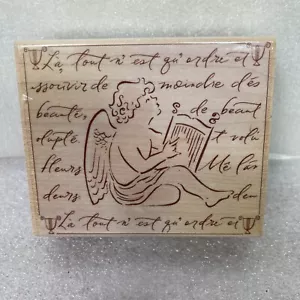 La tout n'est qu'ordre et
ssouvir de moindre dés
beauté, s de beaut
olupté. t volu
fleurs Me las
deurs deu
La tout n'est qu'ordre et